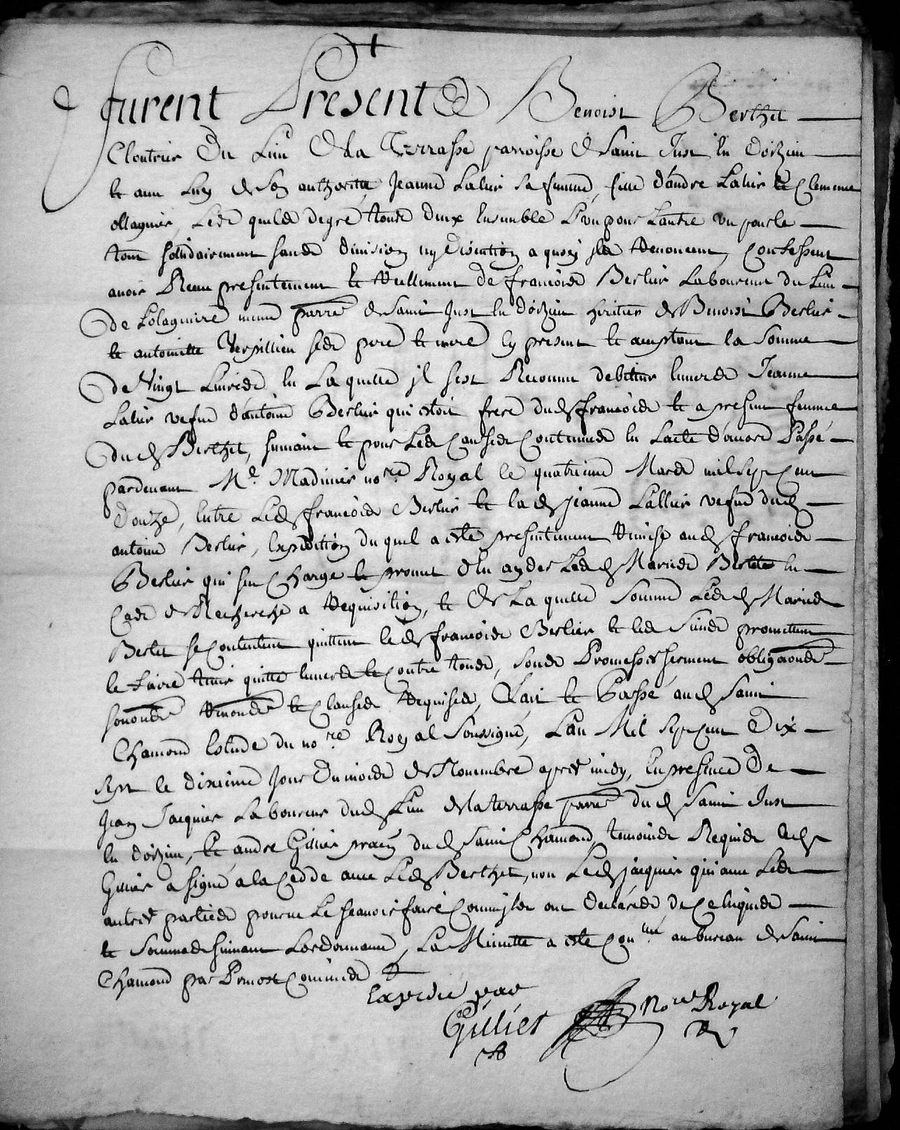 furent Presents Benoist Berthet
Cloutier du Lieu de la Terrasse parroisse de Saint Just en doizieu
et avec luy de son authorité, Jeanne Lalier sa femme, fille d'andre Lalier et Clemence
ollagnier, Lesquels de gré tous deux Ensemble L'un pour Lautre un pour le
tout solidairement sans division ny discution a quoy ils Renoncent, Confessent
avoir Receu presentement et Reellement de francois Berlier Laboureur du Lieu
de Lolagniere mesme parre de Saint Just en doizieu heritier de Benoist Berlier
et antoinette Verpillieu ses pere et mere cy present et acceptant la Somme
de Vingt Livres en Laquelle il sest Reconnu debiteur envers Jeanne
Lalier vefue d'antoine Berlier qui estoit frere dud francois et a presant femme
dud Berthet, suivant et pour Les Causes Contenues en Lacte d'acord Passé
pardevant Me Madinier nore Royal le quatrieme Mars mil sept cent
douze, Entre Led francois Berlier et la d Jeanne Lallier vefue dud
antoine Berlier, Expedition du quel a esté presentement Remise aud francois
Berlier qui sen charge et promet d'en ayder Lesd Mariés Berthet en
Cas de Recherche a Requisition, et de La quelle Somme Lesd Mariés
Berlet se contentent quittent led francois Berlier et les Siens promettent
le faire tenir quitte envers et contre tous, sous Promesses serment obligaons
soumons Renons et clauses Requises, fait et Passé aud Saint
Chamond Estude du nore Royal Soussigné, Lan Mil sept cent Dix
sept le dixieme jour du mois de Novembre apres midy, En presence de
Jean Jacquier Laboureur dud Lieu de la terrasse parre dud Saint Just
en doizieu, et andre Gillier dud Saint Chamond temoins Requis led
Gillier a signé a la Cedde avec Led Berthet, non Led jacquier qui avec Les
autres parties pour ne le scavoir faire Comme ils ont declarés de ce Enquis
et Sommes suivant Lordonnance, La Minutte a esté conlée au bureau de Saint
Chamond par Prevost Commis
Expedié par
Gillier Nore Royal